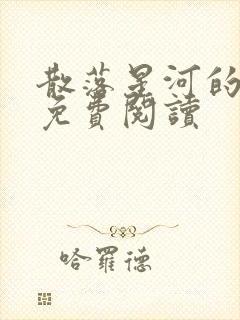 散落星河的
免費閱讀
哈羅德